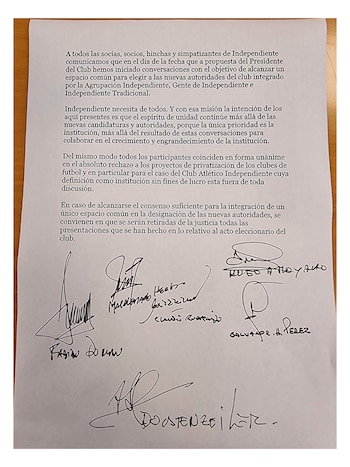 A todos las socias, socios, hinchas y simpatizantes de Independiente
comunicamos que en el día de la fecha que a propuesta del Presidente
del Club hemos iniciado conversaciones con el objetivo de alcanzar un
espacio común para elegir a las nuevas autoridades del club integrado
por la Agrupación Independiente, Gente de Independiente e
Independiente Tradicional.
Independiente necesita de todos. Y con esa misión la intención de los
aquí presentes es que el espíritu de unidad continúe más allá de las
nuevas candidaturas y autoridades, porque la única prioridad es la
institución, más allá del resultado de estas conversaciones para
colaborar en el crecimiento y engrandecimiento de la institución.
Del mismo modo todos los participantes coinciden en forma unánime
en el absoluto rechazo a los proyectos de privatización de los clubes de
futbol y en particular para el caso del Club Atlético Independiente cuya
definición como institución sin fines de lucro esta fuera de toda
discusión.
En caso de alcanzarse el consenso suficiente para la integración de un
único espacio común en la designación de las nuevas autoridades, se
convienen en que se serán retiradas de la justicia todas las
presentaciones que se han hecho en lo relativo al acto eleccionario del
club.
FABIAN DOMAN
DOOSTENZEILER.